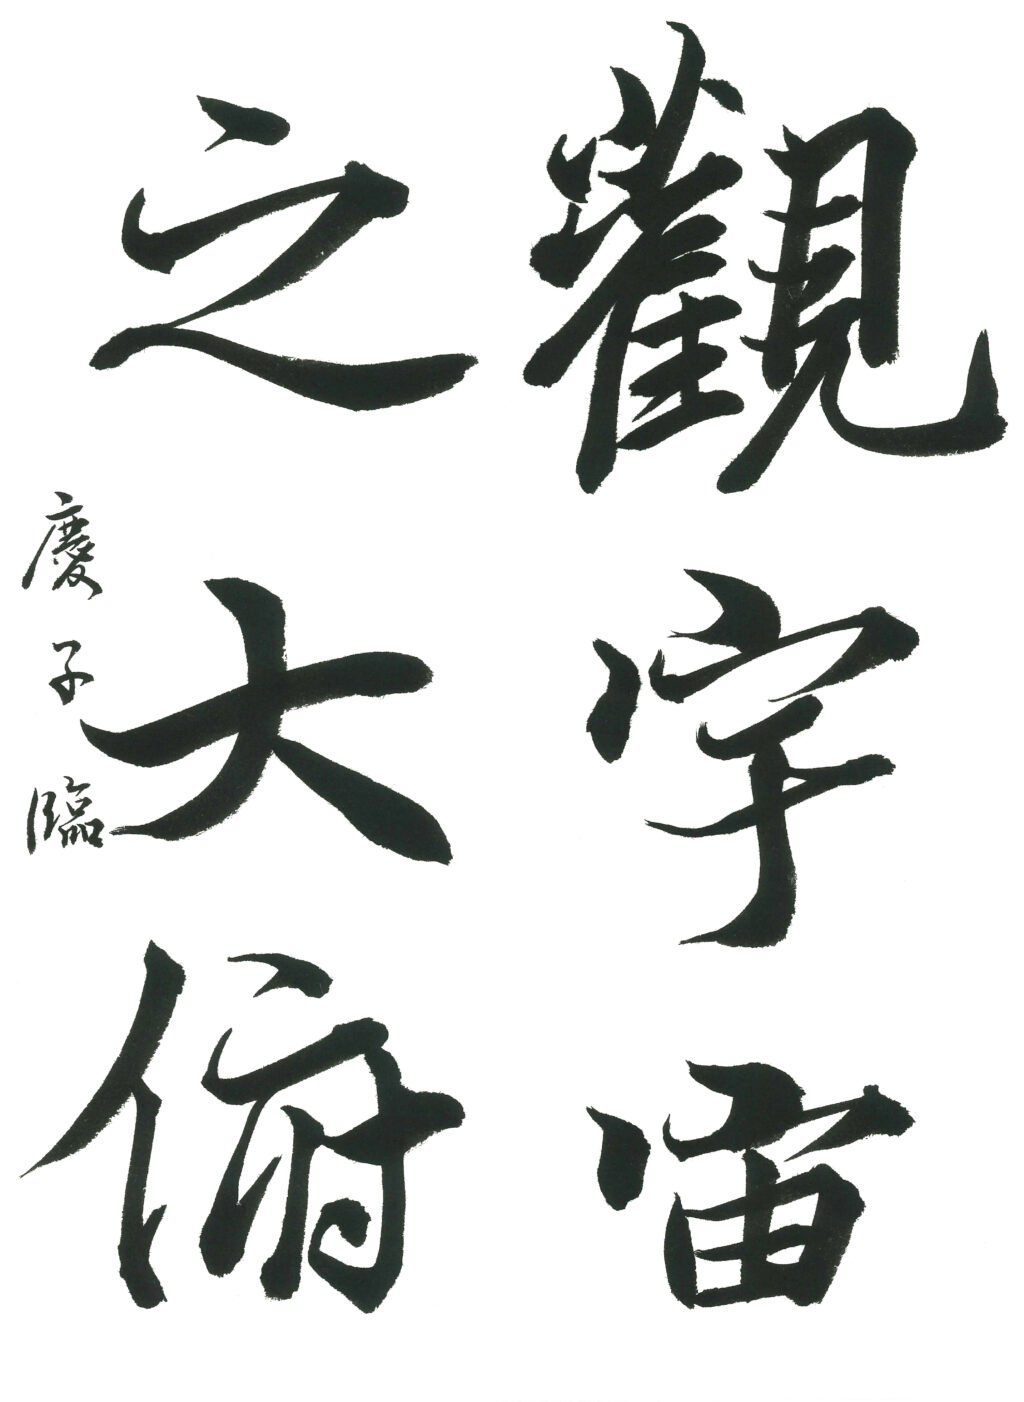 觀宇宙
之大俯
慶子臨